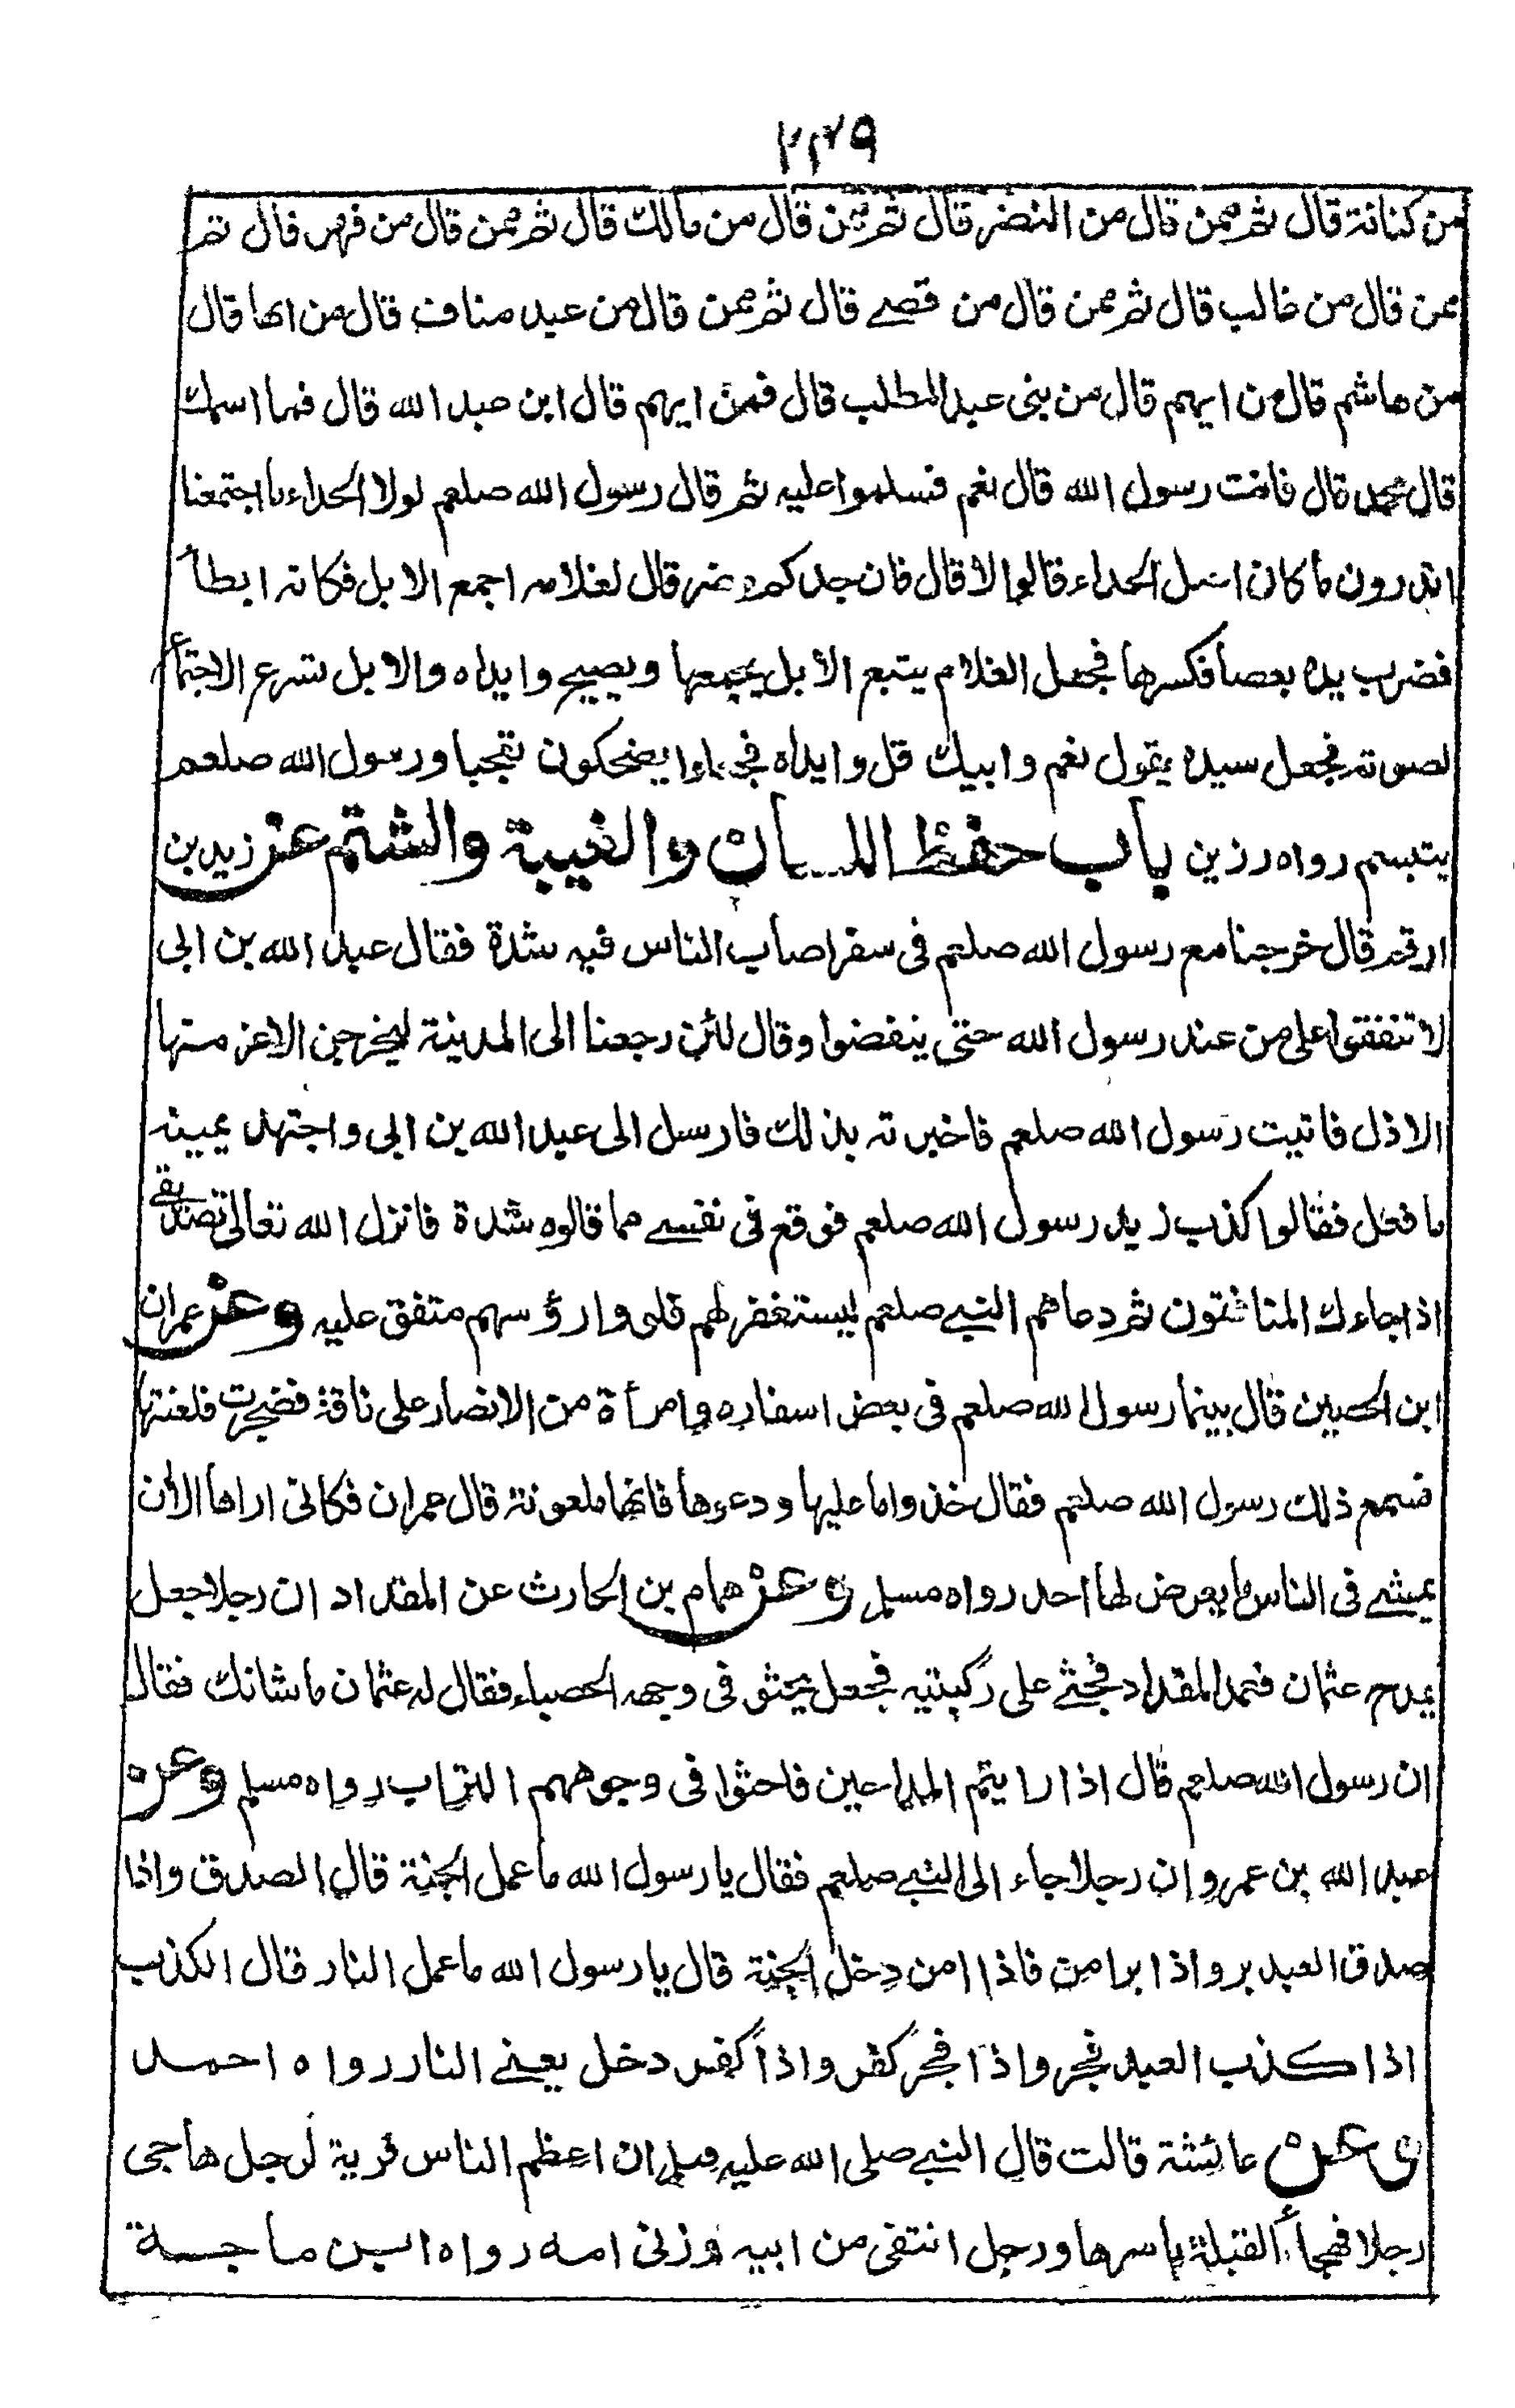 ٢٣٩
من كنانة قال ثم ممن قال من النضر قال ثم ممن قال من مالك قال ثم ممن قال من فهر قال ثم
ممن قال من غالب قال ثم ممن قال من قصے قال ثم ممن قال من عبد مناف قال من ايها قال
من هاشم قال من ايهم قال من بنى عبد المطلب قال فمن ايهم قال ابن عبد الله قال فما اسمك
قال محمد قال فانت رسول الله قال نعم فسلموا عليه ثم قال رسول الله صلعم لولا الحداء ما اجتمعنا
اتدرون ما كان اصل الحداء قالوا لا قال فان جدكم مضر قال لغلامه اجمع الابل فكانه ابطأ
فضرب يده بعصا فكسرها فجعل الغلام يتبع الابل يجمعها ويصيح وايداه والابل تسرع الاجتماع
لصوته فجعل سيده يقول نعم وابيك قل وايداه فجاءوا يضحكون تعجبا ورسول الله صلعم
يتبسم رواه رزين باب حفظ اللسان والغيبة والشتم عن زيد بن
ارقم قال خرجنا مع رسول الله صلعم فى سفر اصاب الناس فيه شدة فقال عبد الله بن ابى
لا تنفقوا على من عند رسول الله حتى ينفضوا وقال لئن رجعنا الى المدينة ليخرجن الاعز منها
الاذل فاتيت رسول الله صلعم فاخبرته بذلك فارسل الى عبد الله بن ابى واجتهد يمينه
ما فعل فقالوا كذب زيد رسول الله صلعم فوقع فى نفسے مما قالوه شدة فانزل الله تعالى تصديقے
اذا جاءك المنافقون ثم دعاهم النبے صلعم ليستغفر لهم فلووا رؤسهم متفق عليه وعن عمران
ابن الحصين قال بينما رسول الله صلعم فى بعض اسفاره وامرأة من الانصار على ناقة فضجرت فلعنتها
فسمع ذلك رسول الله صلعم فقال خذوا ما عليها ودعوها فانها ملعونة قال عمران فكانى اراها الان
يمشے فى الناس ما يعرض لها احد رواه مسلم وعن همام بن الحارث عن المقداد ان رجلا جعل
يمدح عثمان فعمد المقداد فجثے على ركبتيه فجعل يحثو فى وجهه الحصباء فقال له عثمان ما شانك فقال
ان رسول الله صلعم قال اذا رايتم المداحين فاحثوا فى وجوههم التراب رواه مسلم وعن
عبد الله بن عمرو ان رجلا جاء الى النبے صلعم فقال يا رسول الله ما عمل الجنة قال الصدق واذا
صدق العبد بر واذا بر امن فاذا امن دخل الجنة قال يا رسول الله ما عمل النار قال الكذب
اذا كذب العبد فجر واذا فجر كفر واذا كفر دخل يعنے النار رواه احمد
وعن عائشة قالت قال النبے صلى الله عليه وسلم ان اعظم الناس فرية لرجل هاجى
رجلا فهجا القبيلة باسرها ورجل انتفى من ابيه وزنى امه رواه ابن ماجة